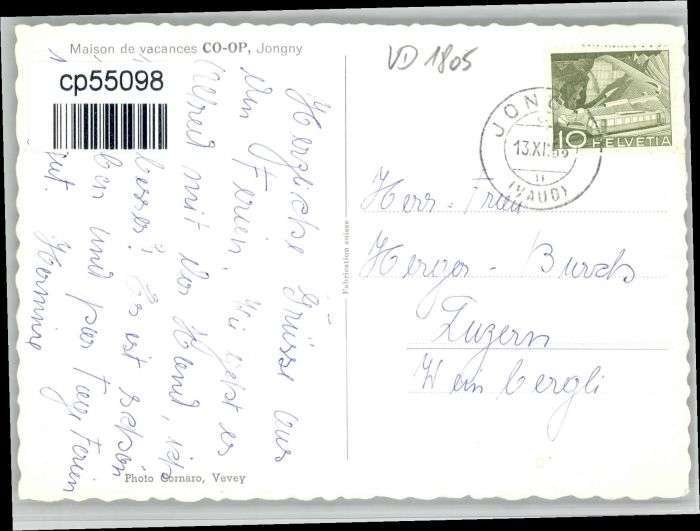 Maison de vacances CO-OP, Jongny
cp55098
Herzliche Grüsse aus
den Ferien. Wie geht es
mit der Hand, ist
besser? Es ist schön
hier und paar Tag Ferien
gut. Hermine
Photo Cornaro, Vevey
Fabrication suisse
VD 1805
JONGNY
13.XI.
(VAUD)
10 HELVETIA
Herr - Frau
Herger - Burch
Luzern
Weinbergli